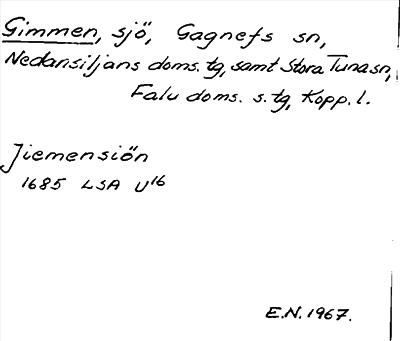 Gimmen, sjö, Gagnefs sn,
Nedansiljans doms. tg, samt Stora Tuna sn,
Falu doms. s. tg, Kopp. l.
Jiemensiön
1685 LSA U16
E.N. 1967.